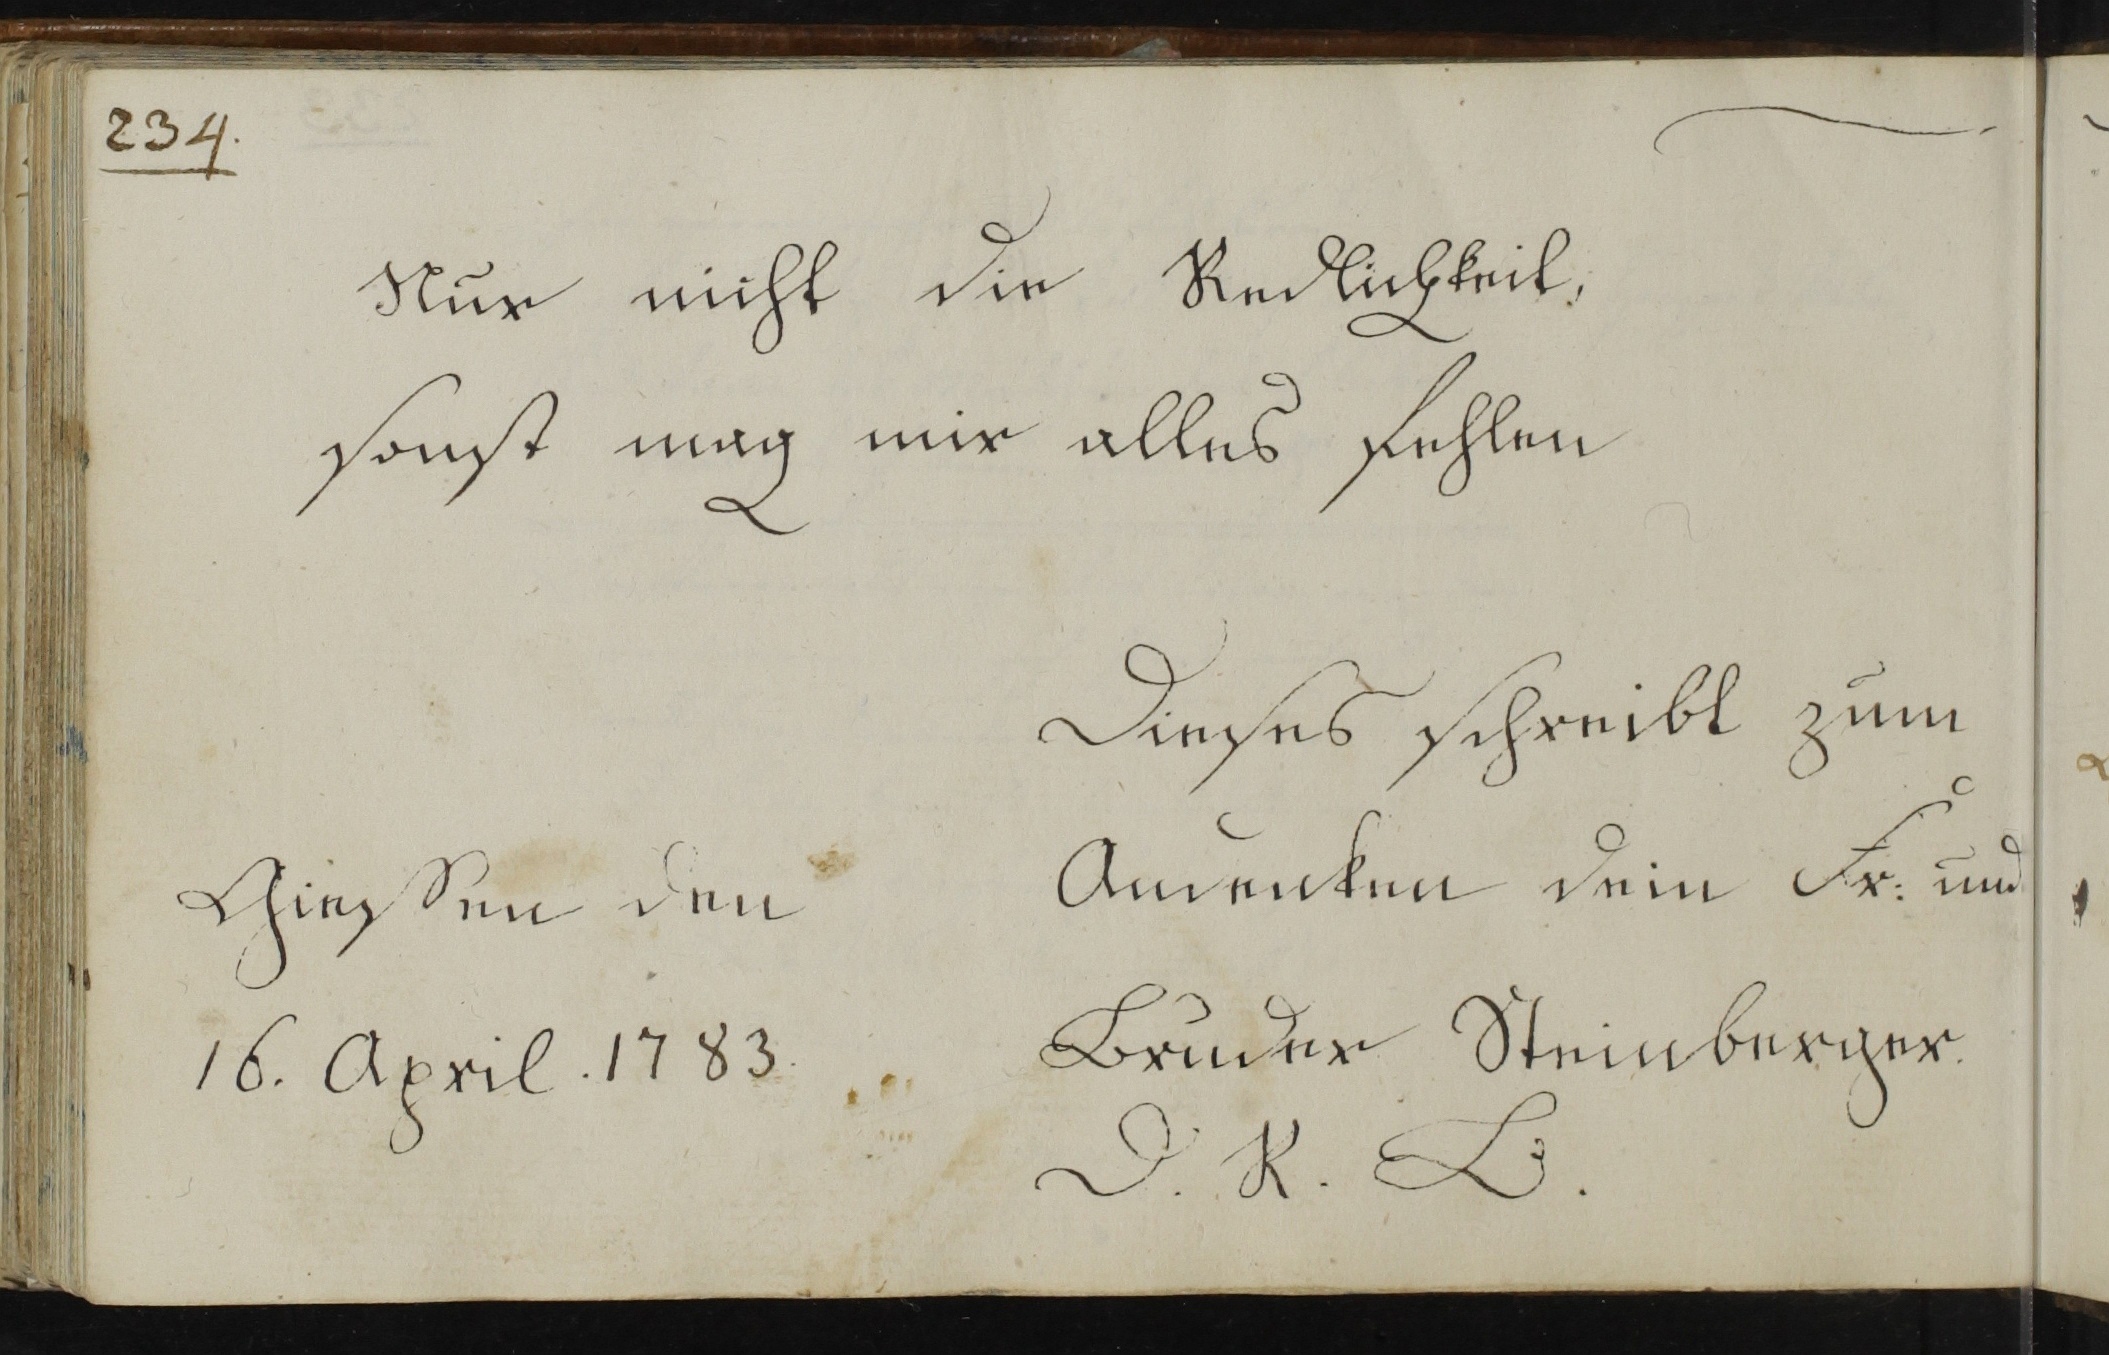 234.
Nur nicht die Redlichkeit,
sonst mag mir alles fehlen
Dieses schreibt zum
Andenken dein Fr: und
Bruder Steinberger.
D. R. B.
Giessen den
16. April. 1783.